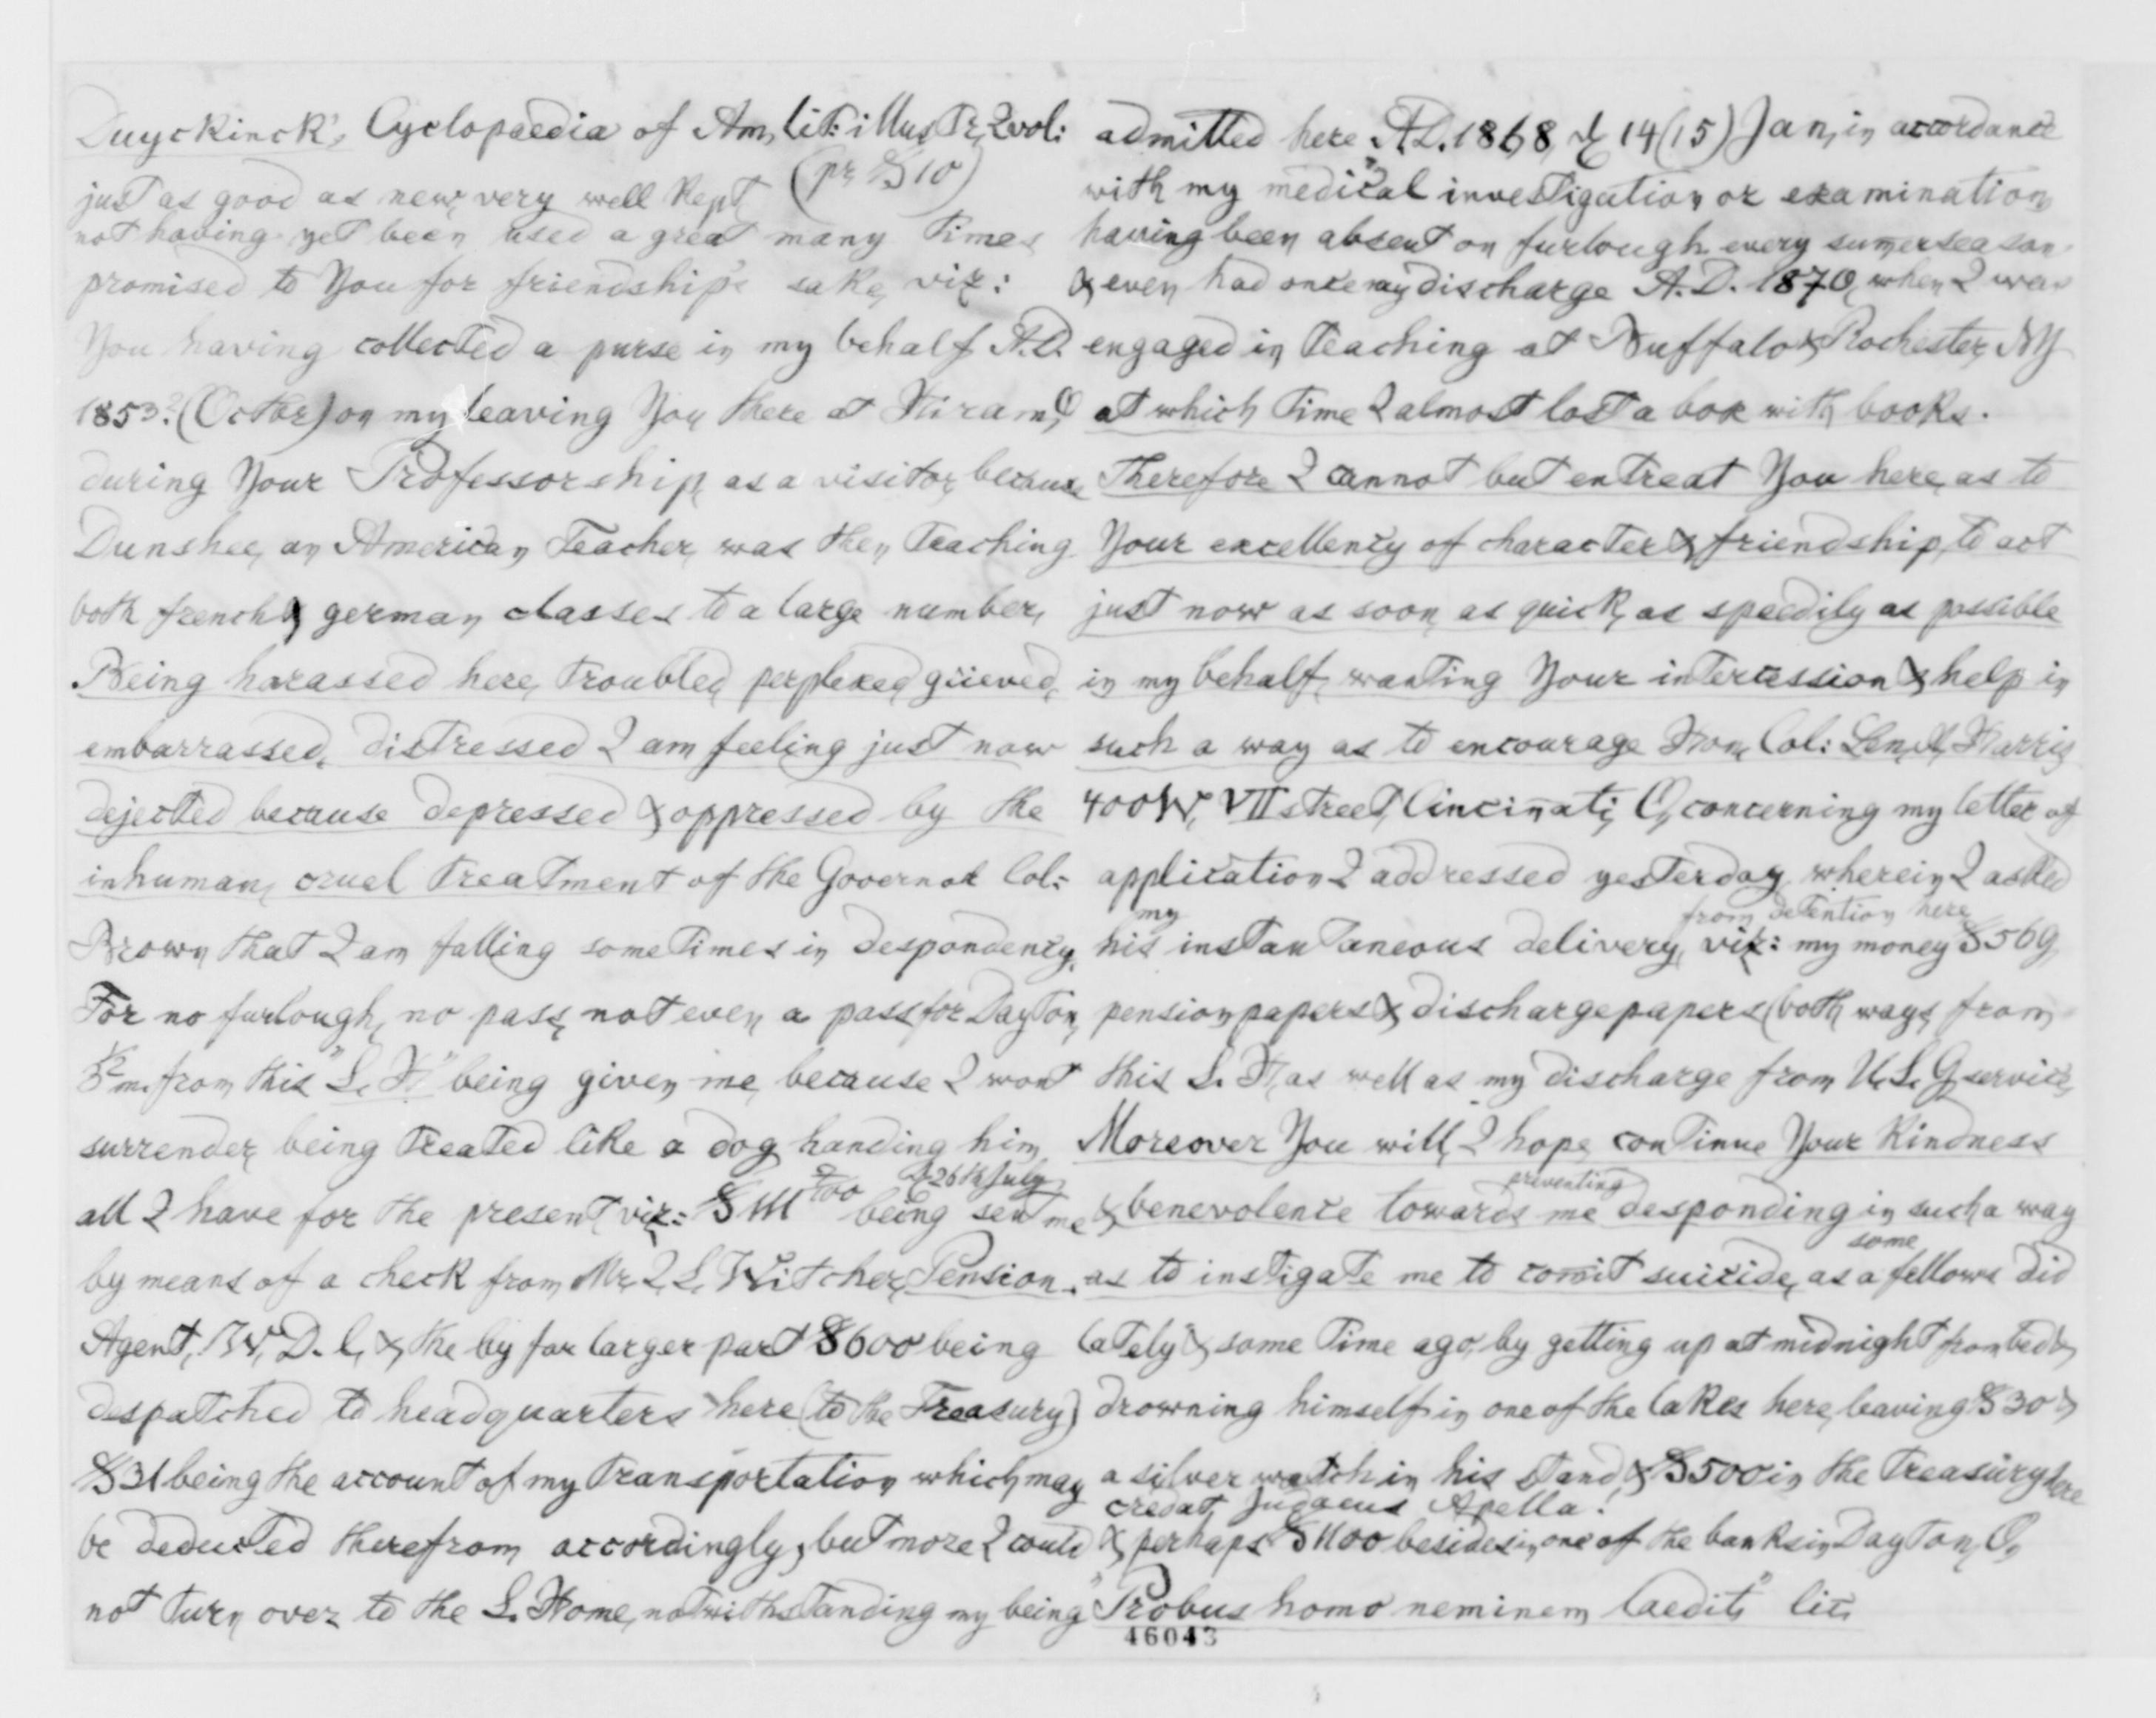 Duyckinck's Cyclopaedia of Am, Lit: illustr, 2 vol:
(pr $10)
just as good as new, very well kept
not having yet been used a great many times
promised to You for friendship's sake, viz:
You having collected a purse in my behalf A.D.
1853? (Octbr) on my leaving You there at Hiram, O
during Your Professorship, as a visitor, because
Dunshee, an American Teacher, was then teaching
both french & german classes to a large number,
Being harassed here, troubled, perplexed, griieved,
embarrassed, distressed I am feeling just now
dejected because depressed & oppressed by the
inhuman, cruel treatment of the Governor Col:
Brown that I am falling sometimes in despondency.
For no furlough, no pass, not even a pass for Dayton,
m. from this "S. H" being given me, because I wont
surrender, being treated like a dog, handing him,
all I have for the present, viz: being sent me
26th July
by means of a check from Mr. Witcher, Pension.
Agent, W, D. C, & the by far larger part $600 being
despatched to headquarters here (to the Treasury)
$31 being the account of my transportation which may
be deducted therefrom accordingly, but more I could
not turn over to the S. Home, notwithstanding my being
admitted here A.D. 1868, d 14 (15) Jan, in accordance
with my medical investigation or examination
having been absent on furlough every sumerseason
& even had once my discharge A.D. 1870, when I was
engaged in teaching at Buffalo & Rochester, NY
at which time I almost lost a box with books.
Therefore I cannot but entreat You here, as to
Your excellency of character & friendship, to act
just now as soon, as quick, as speedily as possible
in my behalf, wanting Your intercession & help in
such a way as to encourage Hon, Col: Len, A, Harris
400 W, VII street, Cincinati, O, concerning my letter of
application I addressed yesterday, wherein I asked
my from detention here
his instantaneous delivery, viz: my money $569,
pensionpapers & dischargepapers (both ways, from
this S. H, as well as my discharge from U. S. G service,
Moreover You will, I hope, continue Your Kindness
preventing
& benevolence towards me desponding in such a way
some
as to instigate me to comit suicide, as a fellows did
lately & some time ago, by getting up at midnight from bed &
drowning himself in one of the lakes here, leaving $30 &
a silver watch in his stand, & $500 in the Treasury here
credat Judaeus Apella!
& perhaps $1100 besides in one of the banks in Dayton, O,
"Probus homo neminem laedit," Cic,
46043